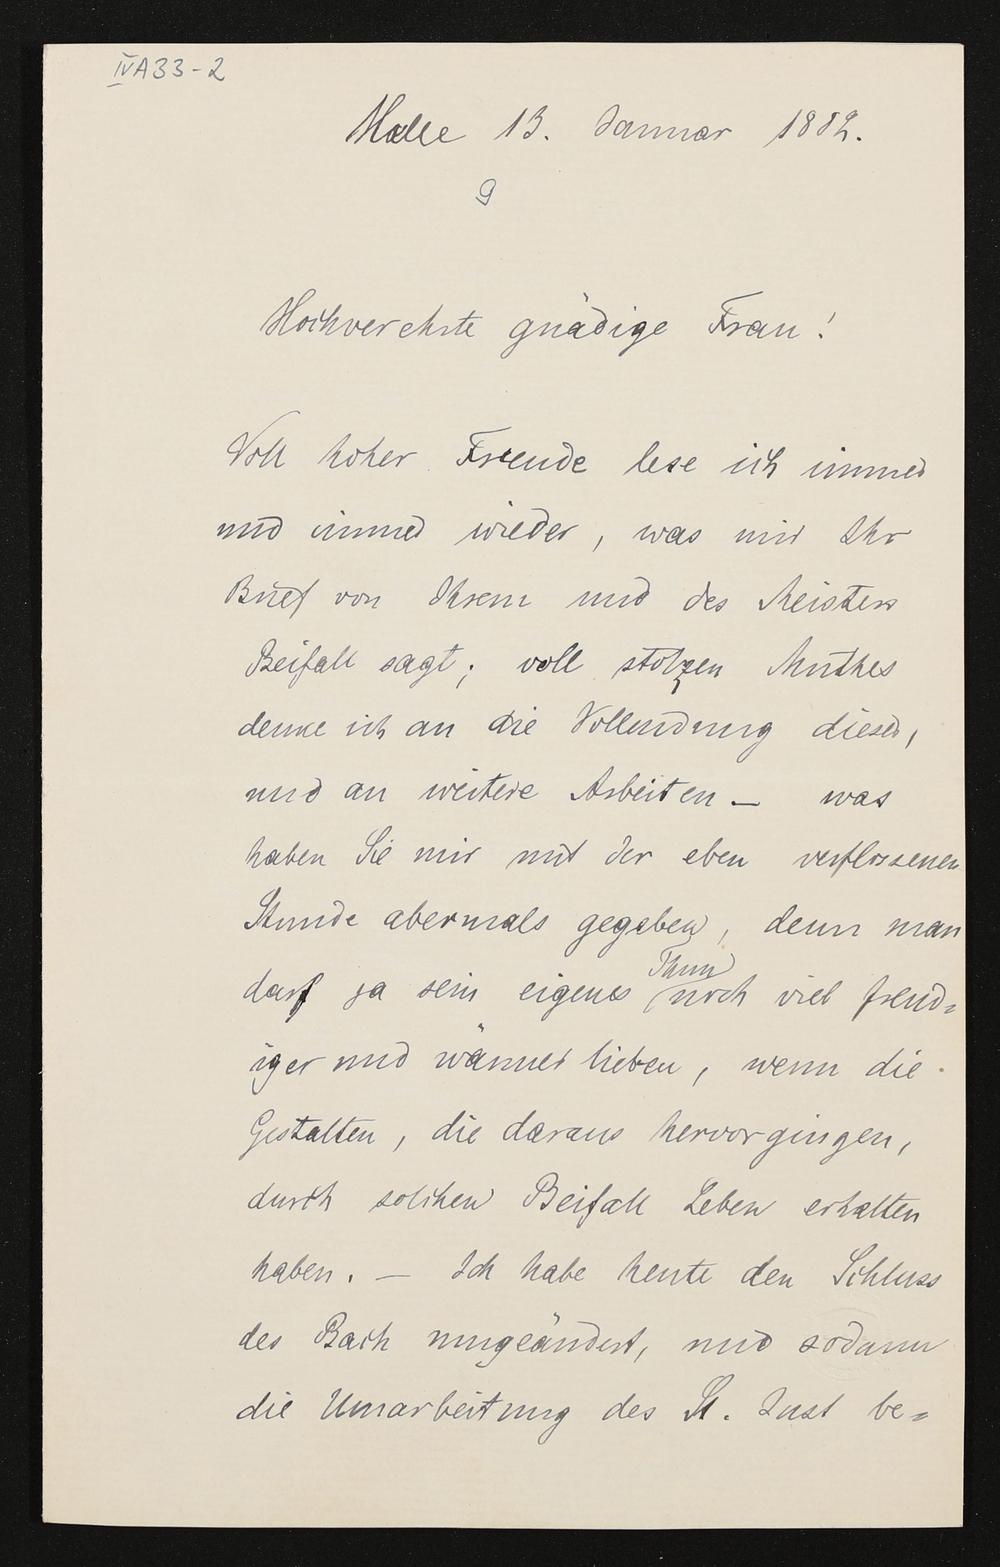 IVA33-2
Halle 13. Januar 1882.
9
Hochverehrte gnädige Frau!
Voll hoher Freude lese ich immer
und immer wieder, was mir Ihr
Brief von Ihrem und des Meisters
Beifall sagt; voll stolzen Muthes
denke ich an die Vollendung dieser,
und an weitere Arbeiten – was
haben Sie mir mit der eben verflossenen
Stunde abermals gegeben, denn man
Thun
darf ja sein eigenes noch viel freud=
iger und wärmer lieben, wenn die
Gestalten, die daraus hervorgingen,
durch solchen Beifall Leben erhalten
haben. – Ich habe heute den Schluss
des Bach umgeändert, und sodann
die Umarbeitung des St. Just be=